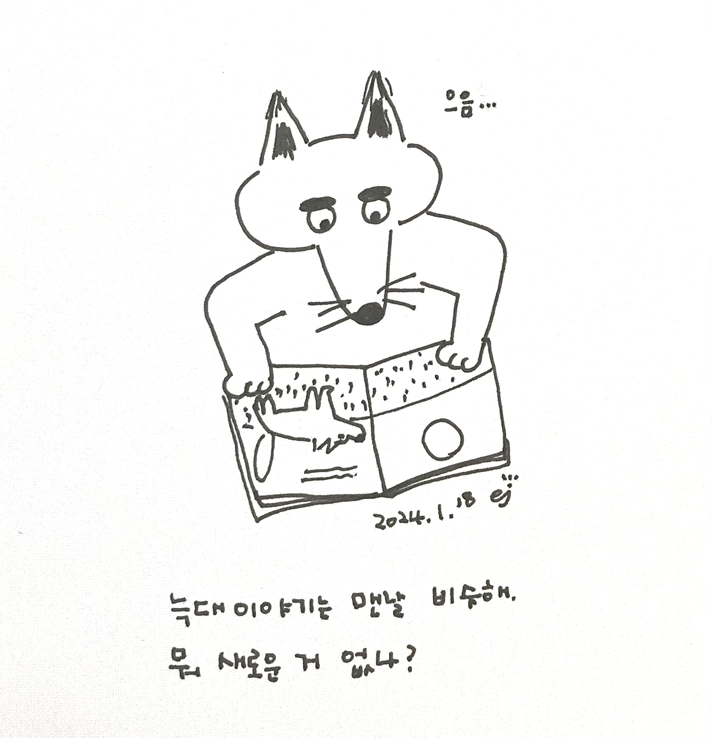 으음...
2024.1.18 ej
늑대 이야기는 맨날 비슷해.
뭐 새로운 거 없나?